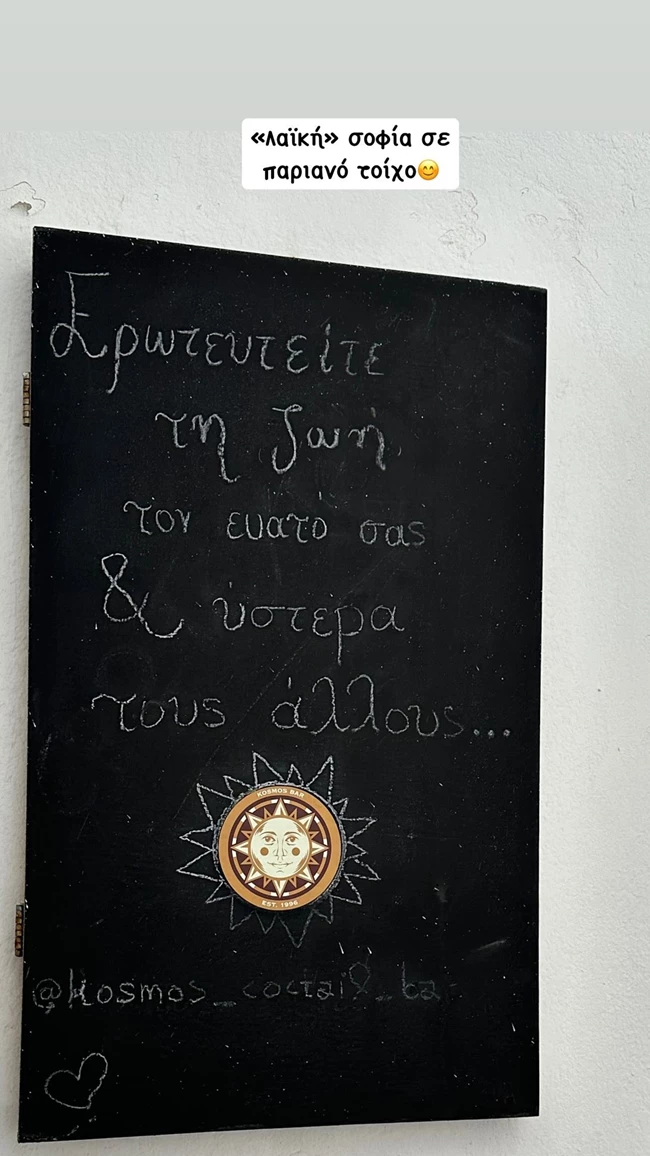 «Λαϊκή» σοφία σε
παριανό τοίχο😊
Ερωτευτείτε
τη ζωή
τον ευατό σας
& ύστερα
τους άλλους...
KOSMOS BAR
EST. 1996
@kosmos_coctail_bar